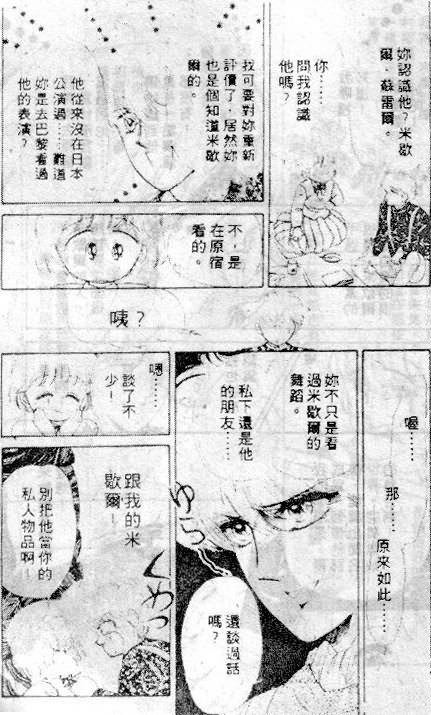 妳認識他？米歇
爾．蘇雷爾。
你……
問我認識
他嗎？
我可要對妳重新
評價了，居然妳
也是個知道米歇
爾的。
他從來沒在日本
公演過……難道
妳是去巴黎看過
他的表演？
不，是
在原宿
看的。
咦？
喔……
那……
原來如此……
妳不只是看
過米歇爾的
舞蹈。
私下還是他
的朋友……
還談過話
嗎？
嗯……
談了不
少！
跟我的米
歇爾！
別把他當你的
私人物品啊！